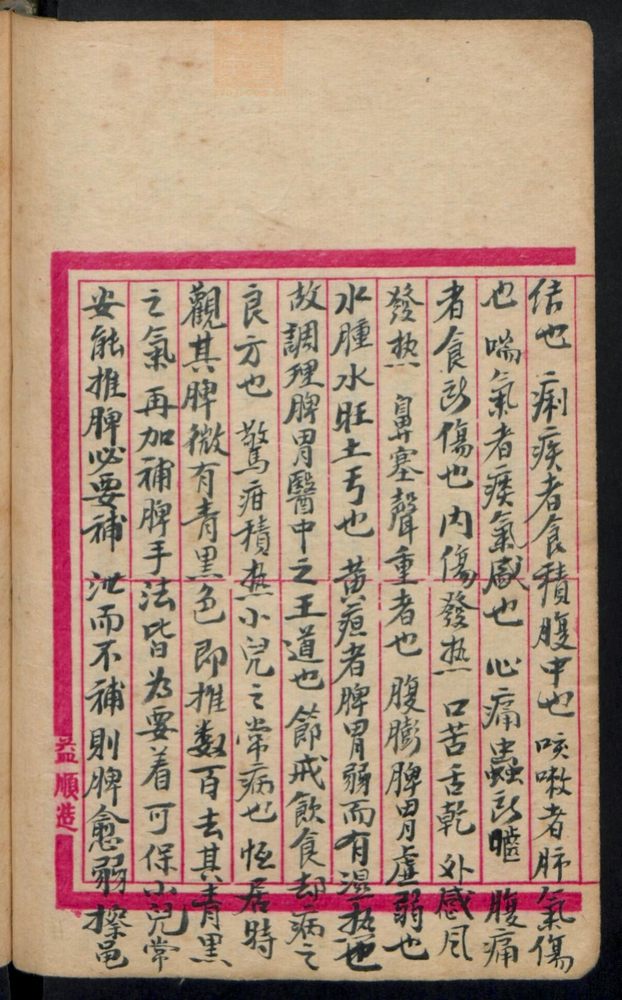 结也 痢疾者食積腹中也 咳嗽者肺氣傷
也 喘氣者痰氣盛也 心痛蟲所嚙 腹痛
者食所傷也 内傷發热 口苦舌乾 外感风
發热 鼻塞聲重者也 腹膨脾胃虛弱也
水腫水旺土亏也 黄疸者脾胃弱而有濕热也
故調理脾胃醫中之王道也 節戒飲食却病之
良方也 驚疳積热小兒之常病也 恒居時
觀其脾微有青黑色 即推数百去其青黑
之氣 再加補脾手法皆為要着可保小兒常
安能推脾必要補 泄而不補則脾愈弱
益順造